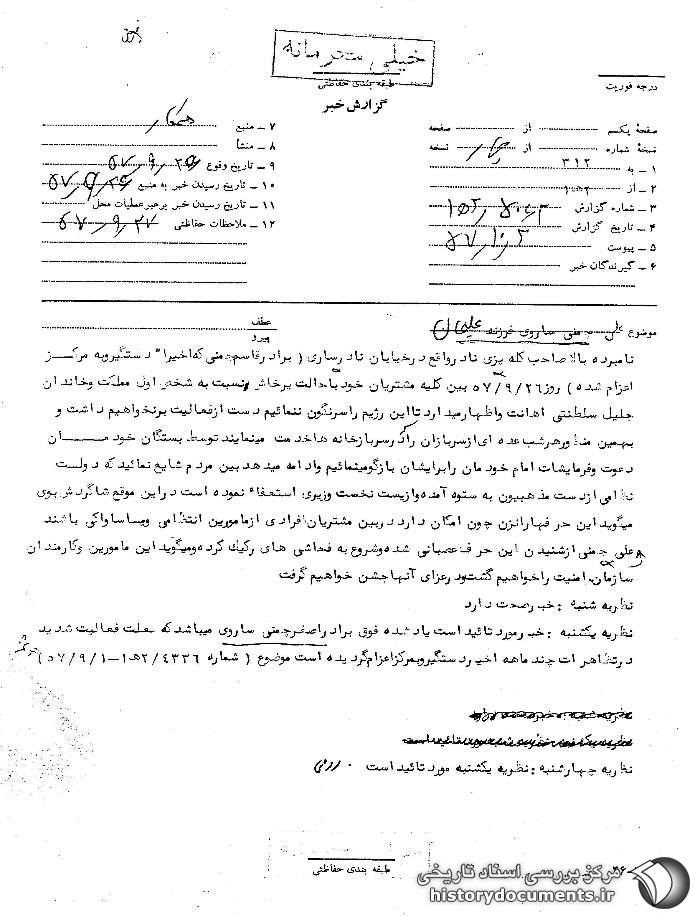 خیلی محرمانه
طبقه بندی حفاظتی
گزارش خبر
درجه فوریت
صفحهٔ یکم از صفحه
نسخهٔ شماره از نسخه
۱ ـ به ۳۱۲
۲ ـ از ۲ ه‍ ۱
۳ ـ شماره گزارش
۴ ـ تاریخ گزارش
۵ ـ پیوست
۶ ـ گیرندگان خبر
۷ ـ منبع همکار
۸ ـ منشأ
۹ ـ تاریخ وقوع ۵۷٫۹٫۲۶
۱۰ ـ تاریخ رسیدن خبر به منبع ۵۷٫۹٫۲۶
۱۱ ـ تاریخ رسیدن خبر برهبر عملیات محل
۱۲ ـ ملاحظات حفاظتی ۵۷٫۹٫۲۷
موضوع علی جمنی ساروی فرزند علیجان
عطف
پیرو
نامبرده بالا صاحب کله پزی نادر واقع در خیابان نادر ساری ( برادر قاسم جمنی که اخیرا" دستگیر و به مرکز
اعزام شده ) روز ۵۷/۹/۲۶ بین کلیه مشتریان خود با حالت پرخاش نسبت به شخص اول مملکت و خاندان
جلیل سلطنتی اهانت و اظهار میدارد تا این رژیم را سرنگون ننمائیم دست از فعالیت برنخواهیم داشت و
بهمین منظور هر شب عده ای از سربازان را که در سربازخانه ها خدمت مینمایند توسط بستگان خودمان
دعوت و فرمایشات امام خودمان را برایشان بازگو مینمائیم و ادامه میدهد بین مردم شایع نمائید که دولت
نظامی از دست مذهبیون به ستوه آمده و از پست نخست وزیری استعفاء نموده است در این موقع شاگردش بوی
میگوید این حرفها را نزن چون امکان دارد در بین مشتریان افرادی از مامورین انتظامی و یا ساواکی باشند
علی جمنی از شنیدن این حرف عصبانی شده و شروع به فحاشی های رکیک کرده و میگوید این مامورین و کارمندان
سازمان امنیت را خواهیم کشت و در عزای آنها جشن خواهیم گرفت
نظریه شنبه : خبر صحت دارد
نظریه یکشنبه : خبر مورد تائید است یاد شده فوق برادر اصغر جمنی ساروی میباشد که بعلت فعالیت شدید
در تظاهرات چند ماهه اخیر دستگیر و بمرکز اعزام گردیده است موضوع ( شماره ۲/۴۳۳۶ ه‍ ۱ـ ۵۷/۹/۱)
نظریه چهارشنبه : نظریه یکشنبه مورد تائید است ۰
طبقه بندی حفاظتی
مرکز بررسی اسناد تاریخی
historydocuments.ir